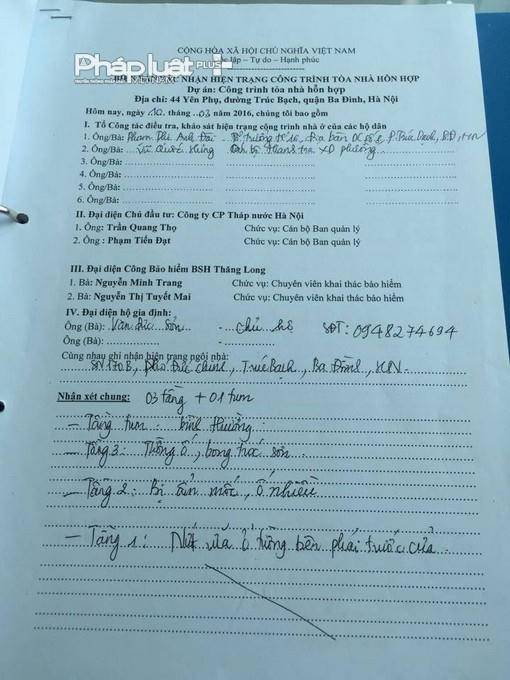 Phápluật PLUS+
CỘNG HÒA XÃ HỘI CHỦ NGHĨA VIỆT NAM
lập – Tự do – Hạnh phúc
NHẬN HIỆN TRẠNG CÔNG TRÌNH TÒA NHÀ HỖN HỢP
Dự án: Công trình tòa nhà hỗn hợp
Địa chỉ: 44 Yên Phụ, đường Trúc Bạch, quận Ba Đình, Hà Nội
Hôm nay, ngày 10 tháng 03 năm 2016, chúng tôi bao gồm
I. Tổ Công tác điều tra, khảo sát hiện trạng công trình nhà ở của các hộ dân
1. Ông/Bà: Phạm Thị Anh - Tổ trưởng tổ, Địa bàn DC số 2, P. Trúc Bạch, BĐ, HN
2. Ông/Bà: Vũ Quốc Hưng Cán bộ thanh tra XD phường
3. Ông/Bà:
4. Ông/Bà:
5. Ông/Bà:
6. Ông/Bà:
II. Đại diện Chủ đầu tư: Công ty CP Tháp nước Hà Nội
1. Ông: Trần Quang Thọ Chức vụ: Cán bộ Ban quản lý
2. Ông : Phạm Tiến Đạt Chức vụ: Cán bộ Ban quản lý
III. Đại diện Công Bảo hiểm BSH Thăng Long
1. Bà: Nguyễn Minh Trang Chức vụ: Chuyên viên khai thác bảo hiểm
2. Bà: Nguyễn Thị Tuyết Mai Chức vụ: Chuyên viên khai thác bảo hiểm
IV. Đại diện hộ gia đình:
Ông (Bà): Văn Đức Sơn - Chủ hộ SĐT: 0948274694
Ông (Bà): -
Cùng nhau ghi nhận hiện trạng ngôi nhà:
SN 170B, Phó Đức Chính, Trúc Bạch, Ba Đình, HN.
Nhận xét chung: 03 tầng + 01 tum
- Tầng tum : bình thường.
- Tầng 3: Tường ố, bong tróc sơn.
- Tầng 2: Bị ẩm mốc, ố nhiều
- Tầng 1: Nứt vữa ở tường bên phải trước cửa.